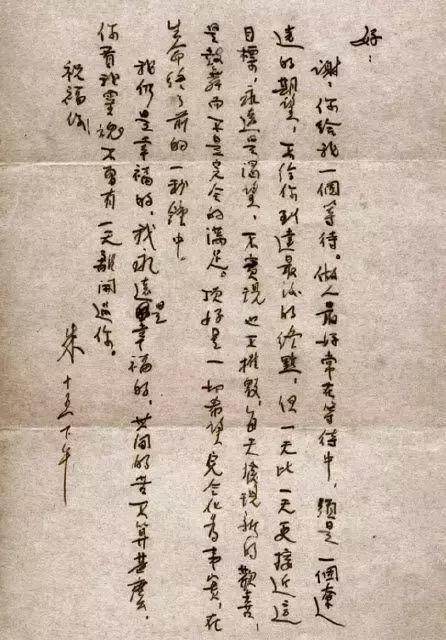 好：
謝々你給我一個等待。做人最好常在等待中，須是一個遼
遠的期望，不給你到達最後的終點，但一天比一天更接近這
目標，永遠是渴望，不實現也不摧毀，每天發現新的歡喜，
是鼓舞而不是完全的滿足。頂好是一切希望完全化為事實，在
生命終了前的一秒鐘中。
我們是幸福的，我永遠是幸福的，世間的苦不算甚麼，
你看我靈魂不曾有一天離開過你。
祝福你
朱 十五下午